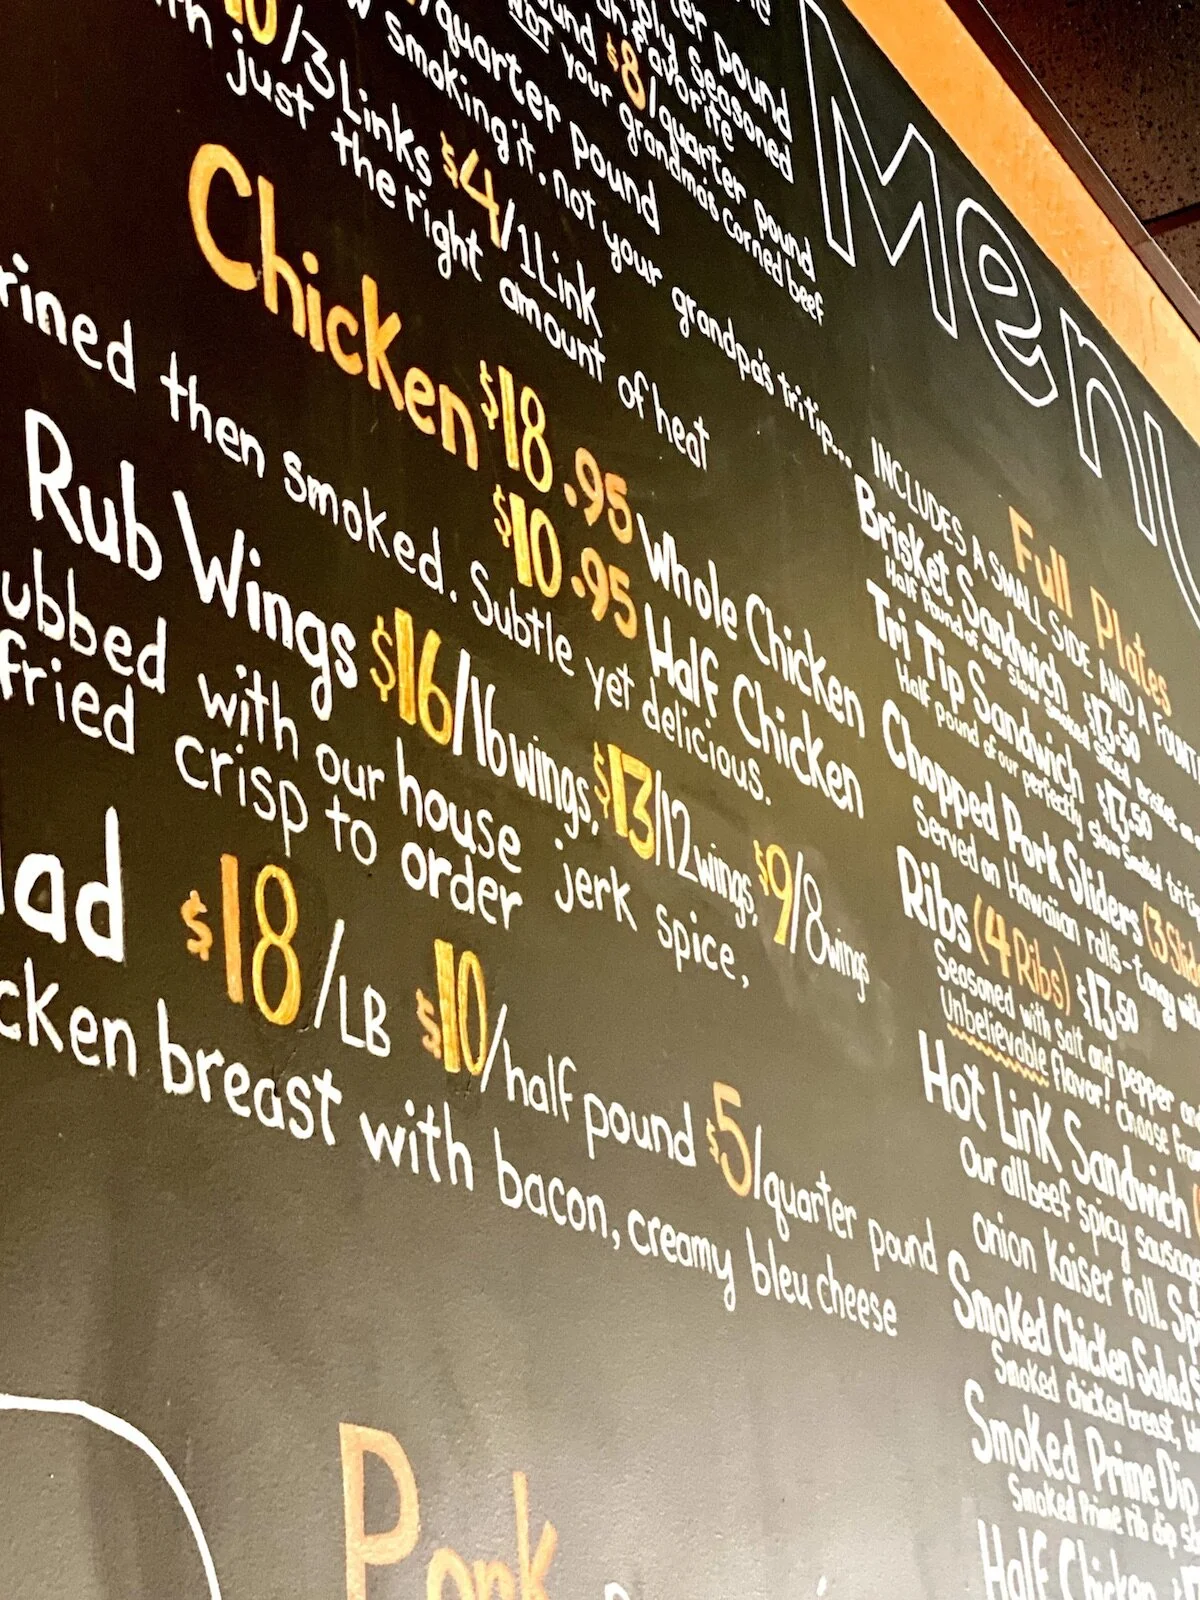 Menu
quarter pound
simply seasoned
favorite
$8/quarter pound
NOT your grandmas corned beef
/quarter pound
smoking it. not your grandpa's tri tip...
10/3 Links $4/1 Link
just the right amount of heat
Chicken
$18.95 Whole Chicken
$10.95 Half Chicken
rined then smoked. Subtle yet delicious.
Rub Wings $16/16wings, $13/12wings, $9/8wings
ubbed with our house jerk spice,
fried crisp to order
lad $18/LB $10/half pound $5/quarter pound
cken breast with bacon, creamy bleu cheese
Pork
Full Plates
INCLUDES A SMALL SIDE AND A FOUNT
Brisket Sandwich $13.50
Half Pound of our slow smoked sliced brisket
Tri Tip Sandwich $13.50
Half pound of our perfectly slow smoked tri ti
Chopped Pork Sliders (3 Slid
Served on Hawaiian rolls-tangy
Ribs (4 Ribs) $13.50
Seasoned with salt and pepper
Unbelievable flavor! Choose from
Hot Link Sandwich
Our all beef spicy sausage
onion Kaiser roll.
Smoked Chicken Salad
Smoked chicken breast,
Smoked Prime Dip
Smoked Prime rib dip
Half Chicken